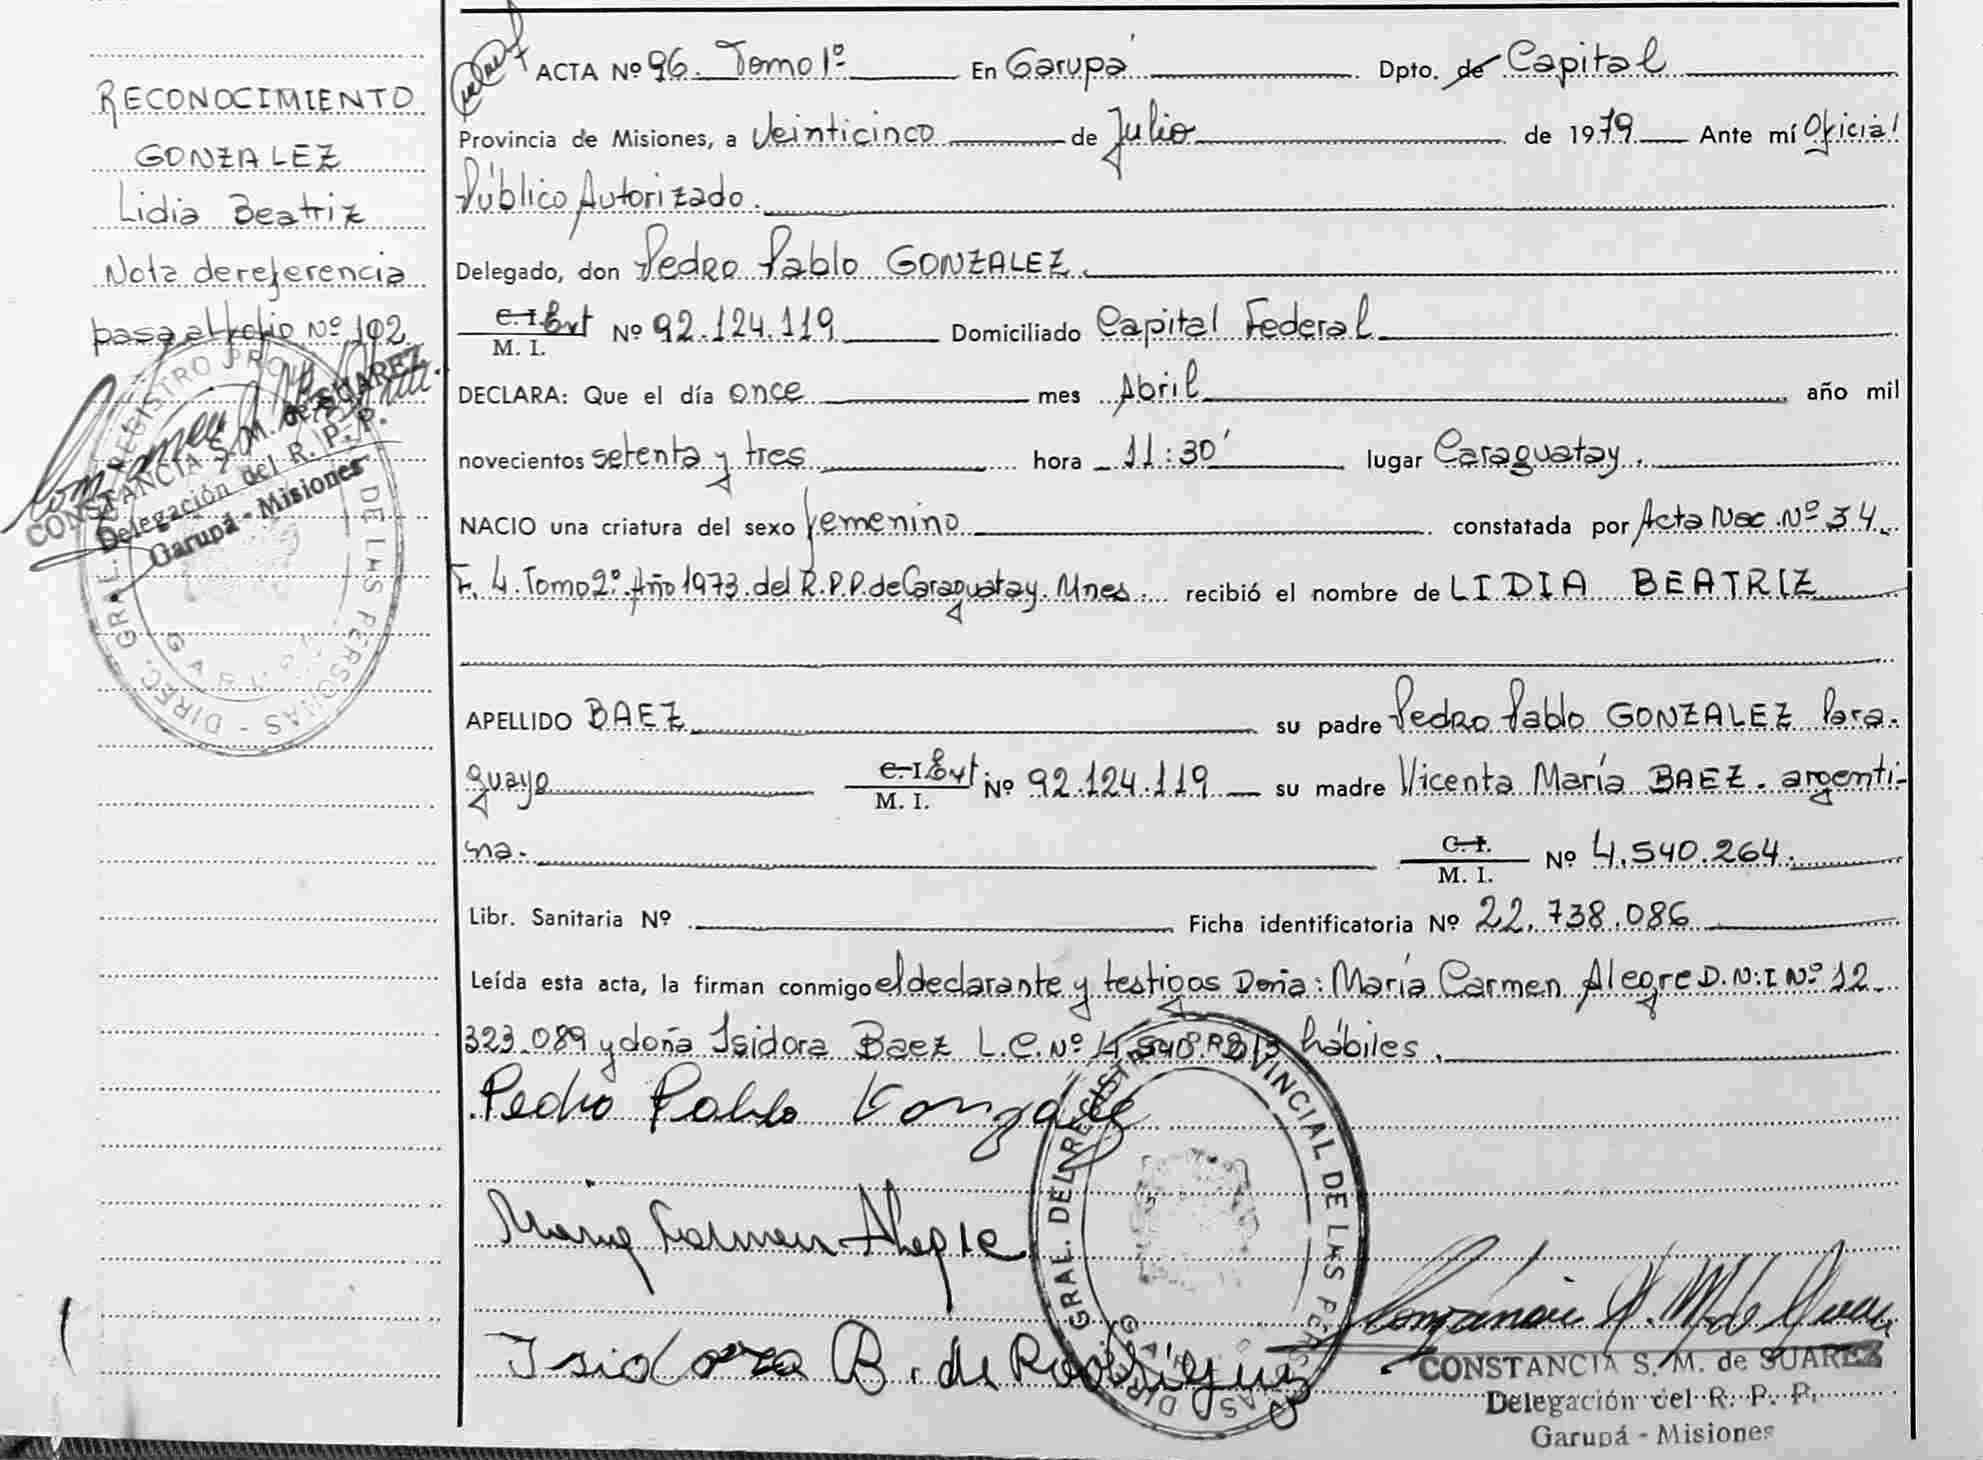 RECONOCIMIENTO
GONZALEZ
Lidia Beatriz
Nota de referencia
pasa al folio Nº 102
CONSTANCIA S. M. de SUAREZ
Delegación del R. P. P.
Garupá - Misiones
DIREC. GRAL. REGISTRO PROV DE LAS PERSONAS -
ACTA Nº 96. Tomo 1º En Garupá Dpto. de Capital
Provincia de Misiones, a Veinticinco de Julio de 1979 Ante mí Oficial
Público Autorizado.
Delegado, don Pedro Pablo GONZALEZ.
C. I. Ext Nº 92.124.119 Domiciliado Capital Federal
M. I.
DECLARA: Que el día once mes Abril año mil
novecientos setenta y tres hora 11:30' lugar Caraguatay.
NACIO una criatura del sexo femenino constatada por Acta Nac. Nº 34.
F. 4. Tomo 2º. Año 1973. del R.P.P. de Caraguatay. Mnes. recibió el nombre de LIDIA BEATRIZ
APELLIDO BAEZ su padre Pedro Pablo GONZALEZ Para-
guayo C. I. Ext Nº 92.124.119 su madre Vicenta María BAEZ. argenti-
M. I.
na. C. I. Nº 4.540.264.
M. I.
Libr. Sanitaria Nº Ficha identificatoria Nº 22.738.086
Leída esta acta, la firman conmigo el declarante y testigos Doña: María Carmen Alegre D.N.I Nº 12.
323.089 y doña Isidora Baez L.C. Nº hábiles.
Pedro Pablo Gonzalez
Maria Carmen Alegre
Isidora B. de Rodriguez
GRAL. DEL REGISTRO PROVINCIAL DE LAS PERSONAS DIR
CONSTANCIA S. M. de SUAREZ
Delegación del R. P. P.
Garupá - Misiones